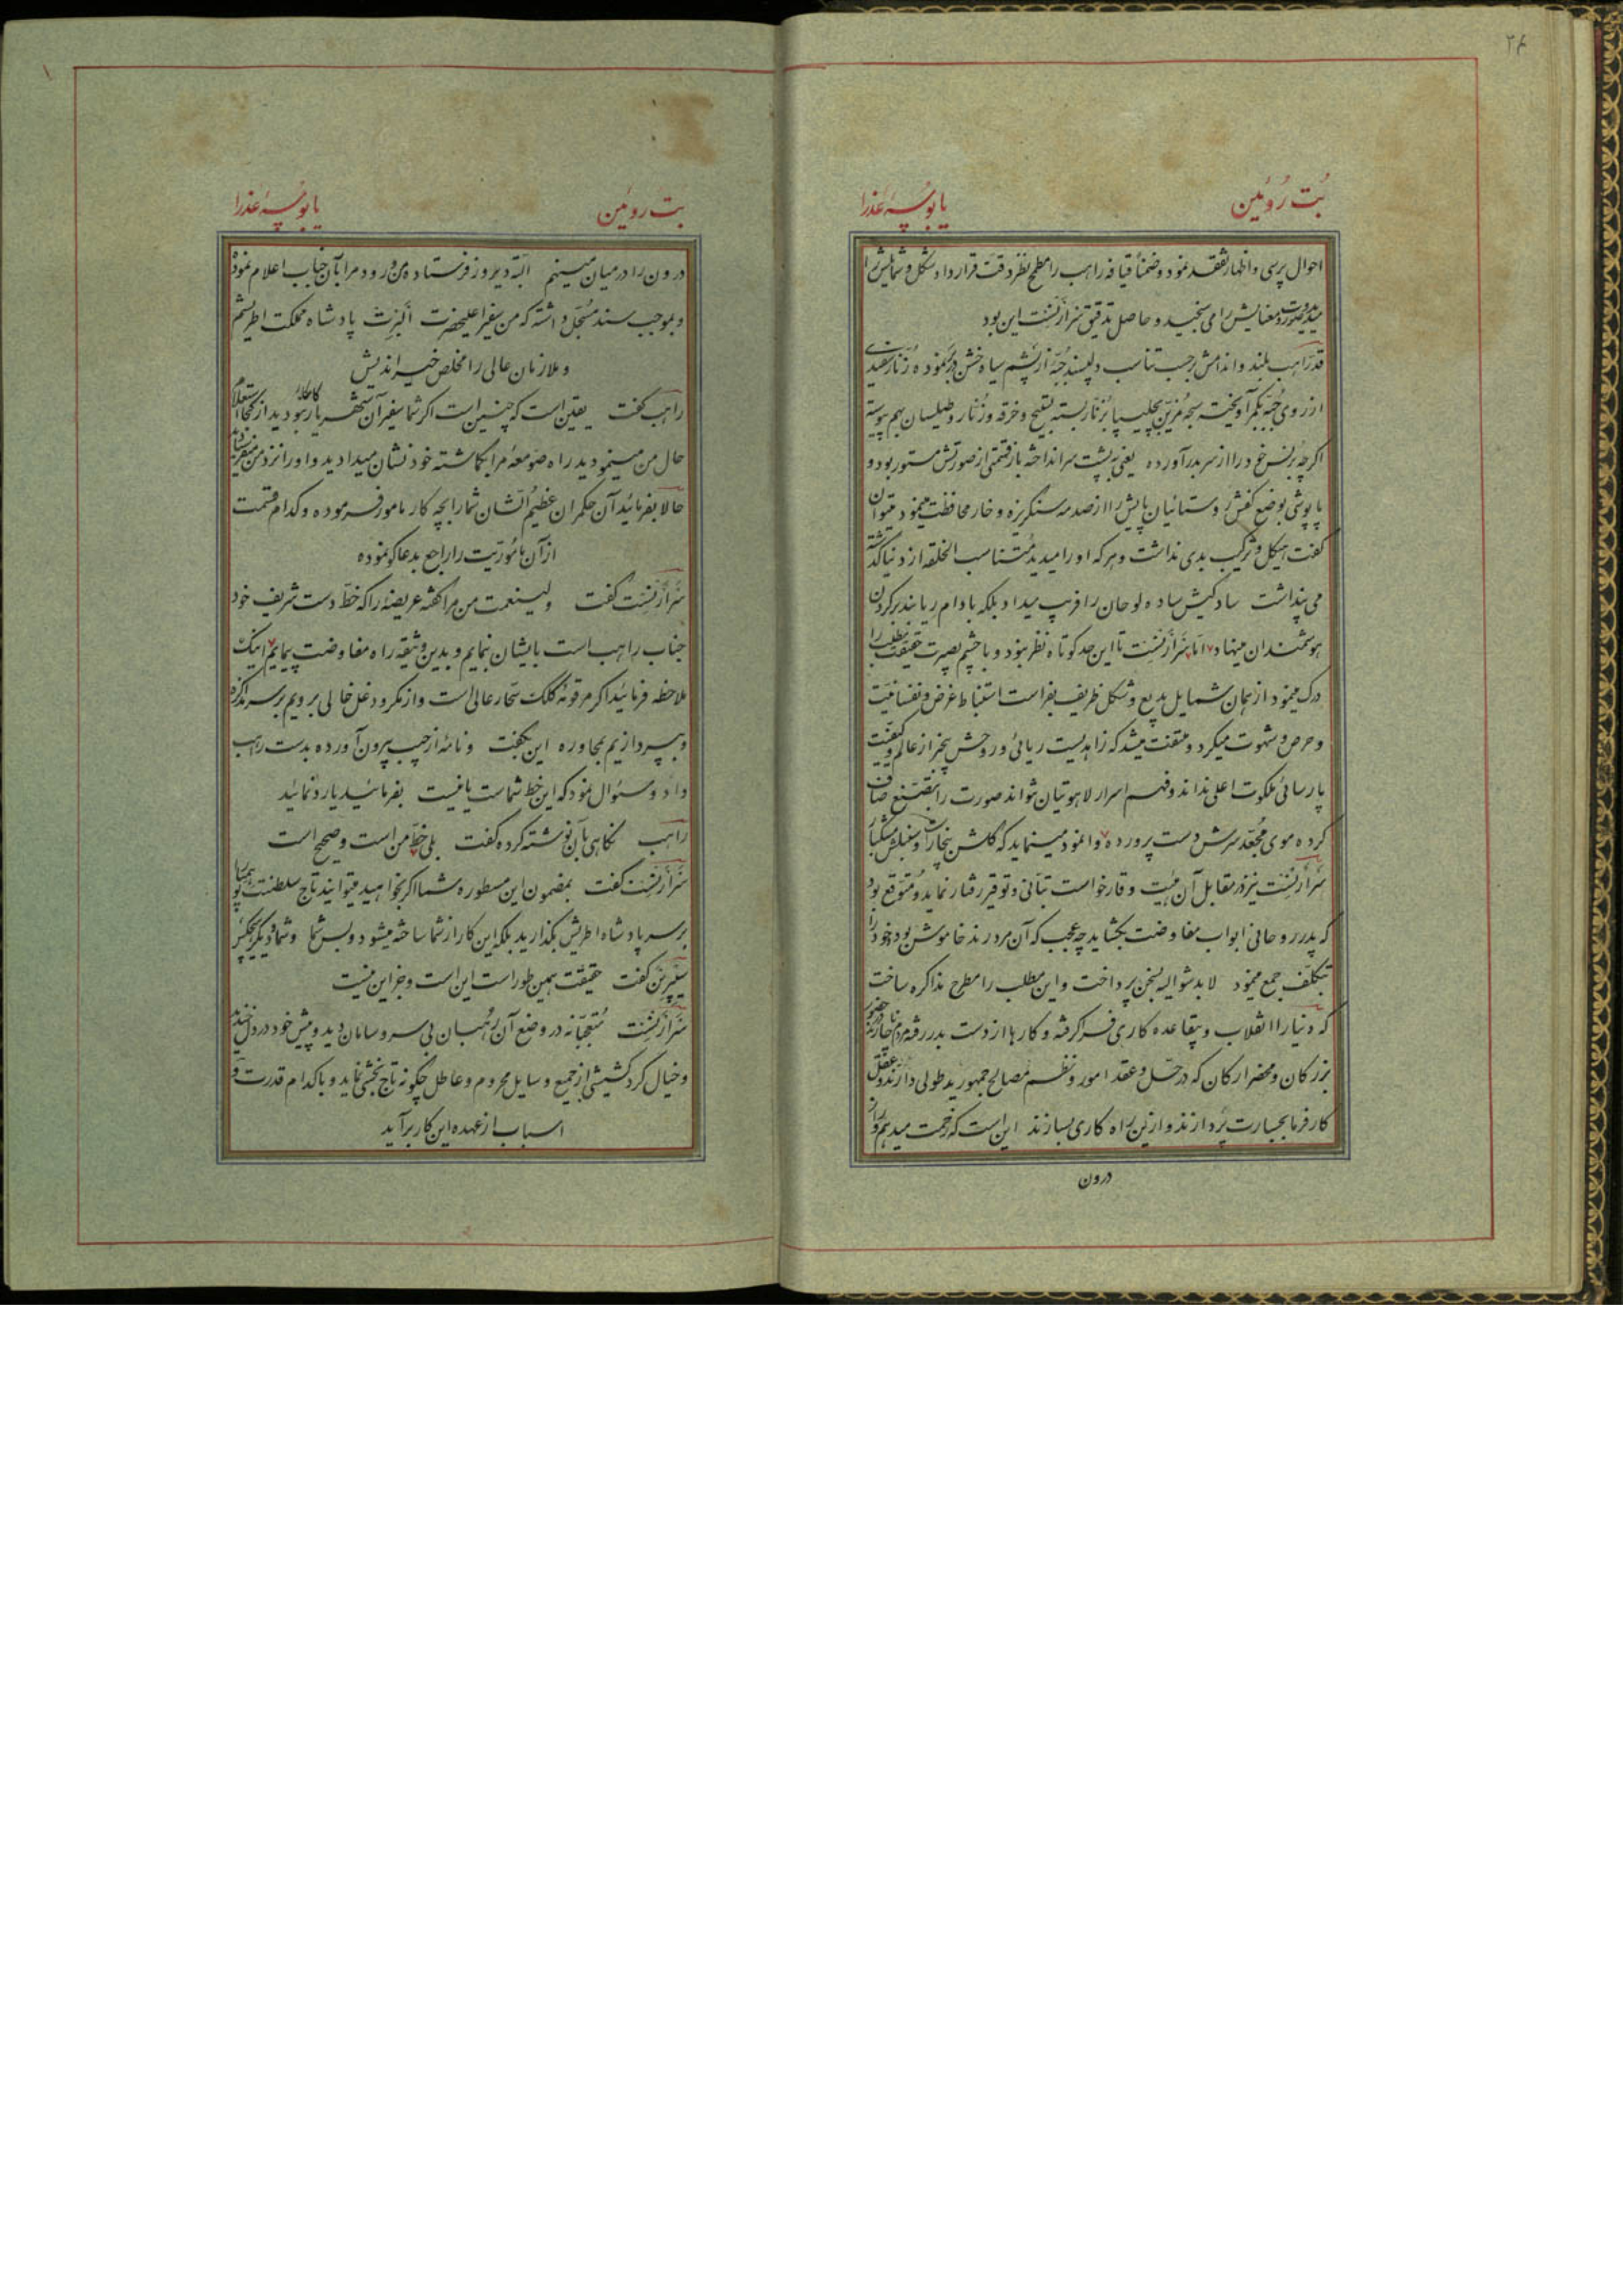 ۲۶
بُت رُوئین
یا بوسهٔ عَذرا
احوال پرسی و اظهار تفقد نمود و ضمناً قیافه راهب را مطمح نظر دقت قرار داد و شکل و شمایلش را
میدید و صورت و معنایش را می سنجید و حاصل تدقیق سَرارنِسْت این بود
قد راهب بلند و اندامش برحسب تناسب دلپسند جُبّهٔ از پشم سیاه خشن در بر نموده و زنار سفیدی
از روی جُبّه بکمر آویخته سبحه مُزیّن بچلیپا بزنار بسته
اگرچه برنس خود را از سر بدر آورده یعنی به پشت سر انداخته باز قسمتی از صورتش مستور بود و
پاپوشی بوضع کفش روستائیان پایش را از صدمه سنگریزه و خار محافظت مینمود میتوان
گفت هیکل و ترکیب بدی نداشت و هر که او را میدید متناسب الخلقه از دنیا گذشته
می پنداشت سادگیش ساده لوحان را فریب میداد بلکه با دام ریا بند بر گردن
هوشمندان مینهاد امّا سَرارنِسْت تا این حد کوتاه نظر نبود و با چشم بصیرت حقیقت مطلب را
درک مینمود از همان شمایل بدیع و شکل ظریف بفراست استنباط غرض و نفسانیت
و حرص و شهوت میکرد و ملتفت میشد که زاهدیست ریائی و روحش بیخبر از عالم
پارسائی ملکوت اعلی نداند و فهم اسرار لاهوتیان نتواند صورت را بتصنع صاف
کرده موی مُجَعّد سرش دست پرورده وانمود مینماید که
سَرارنِسْت نیز در مقابل آن هیئت و قار خواست بتأنی و توقیر رفتار نماید و متوقع بود
که پدر روحانی ابواب مفاوضت بگشاید چه عجب که آن مرد رند خاموش بود و خود را
بتکلف جمع مینمود لابد مشوالیه بسخن پرداخت و این مطلب را مطرح مذاکره ساخت
که دنیا را انقلاب و بیقاعده کاری فرا گرفته و کارها از دست بدر رفته مردم ناچارند در حضور
بزرگان و محضر ارکان که در حَلّ و عقد امور و نظم مصالح جمهور ید طولی دارند و عقل
کارفرما بجسارت پردازند و از این راه کاری بسازند این است که زحمت میدهم و راز
درون
بت روئین
یا بوسهٔ عذرا
درون را در میان مینهم البته دیروز فرستاده من ورود مرا بآن جناب اعلام نموده
و بموجب سند مسجّل داشته که من سفیر اعلیحضرت اَلبِرت پادشاه مملکت اطریشم
و ملازمان عالی را مخلص خیراندیش
راهب گفت یقین است که چنین است اگر شما سفیر آن شهریار نبودید از کجا استعلام
حال من مینمودید راه صومعهٔ مرا بگماشته خود نشان میدادید و او را نزد من میفرستادید
حالا بفرمائید آن حکمران عظیم الشان شما را بچه کار مامور فرموده و کدام قسمت
از آن مأموریت را راجع بدعاگو نموده
سَرارنِسْت گفت ولینعمت من مرا گفته عریضهٔ را که خط دست شریف خود
جناب راهب است بایشان بنمایم و بدین وثیقه راه مفاوضت پیمایم اینک
ملاحظه فرمائید اگر مرقومه کلک سحّار عالی است و از مکر و دغل خالی برویم بر سر مذاکره
و بپردازیم بمحاوره این بگفت و نامهٔ از جیب بیرون آورده بدست راهب
داد و سئوال نمود که این خط شماست یا نیست بفرمائید یا رد نمائید
راهب نگاهی بآن نوشته کرده گفت بلی خطّ من است و صحیح است
سَرارنِسْت گفت بمضمون این مسطوره شما اگر بخواهید میتوانید تاج سلطنت
بر سر پادشاه اطریش بگذارید بلکه این کار از شما ساخته میشود و بس شما و شما دیگر هیچکس
سیپرین گفت حقیقت همین طور است این است و جز این نیست
سَرارنِسْت مُتعجّبانه در وضع آن رُهبان بی سر و سامان دید و پیش خود در دل خندید
و خیال کرد کشیشی از جمیع وسایل محروم و عاطل چگونه تاج بخشی نماید و با کدام قدرت و
اسباب از عهده این کار برآید